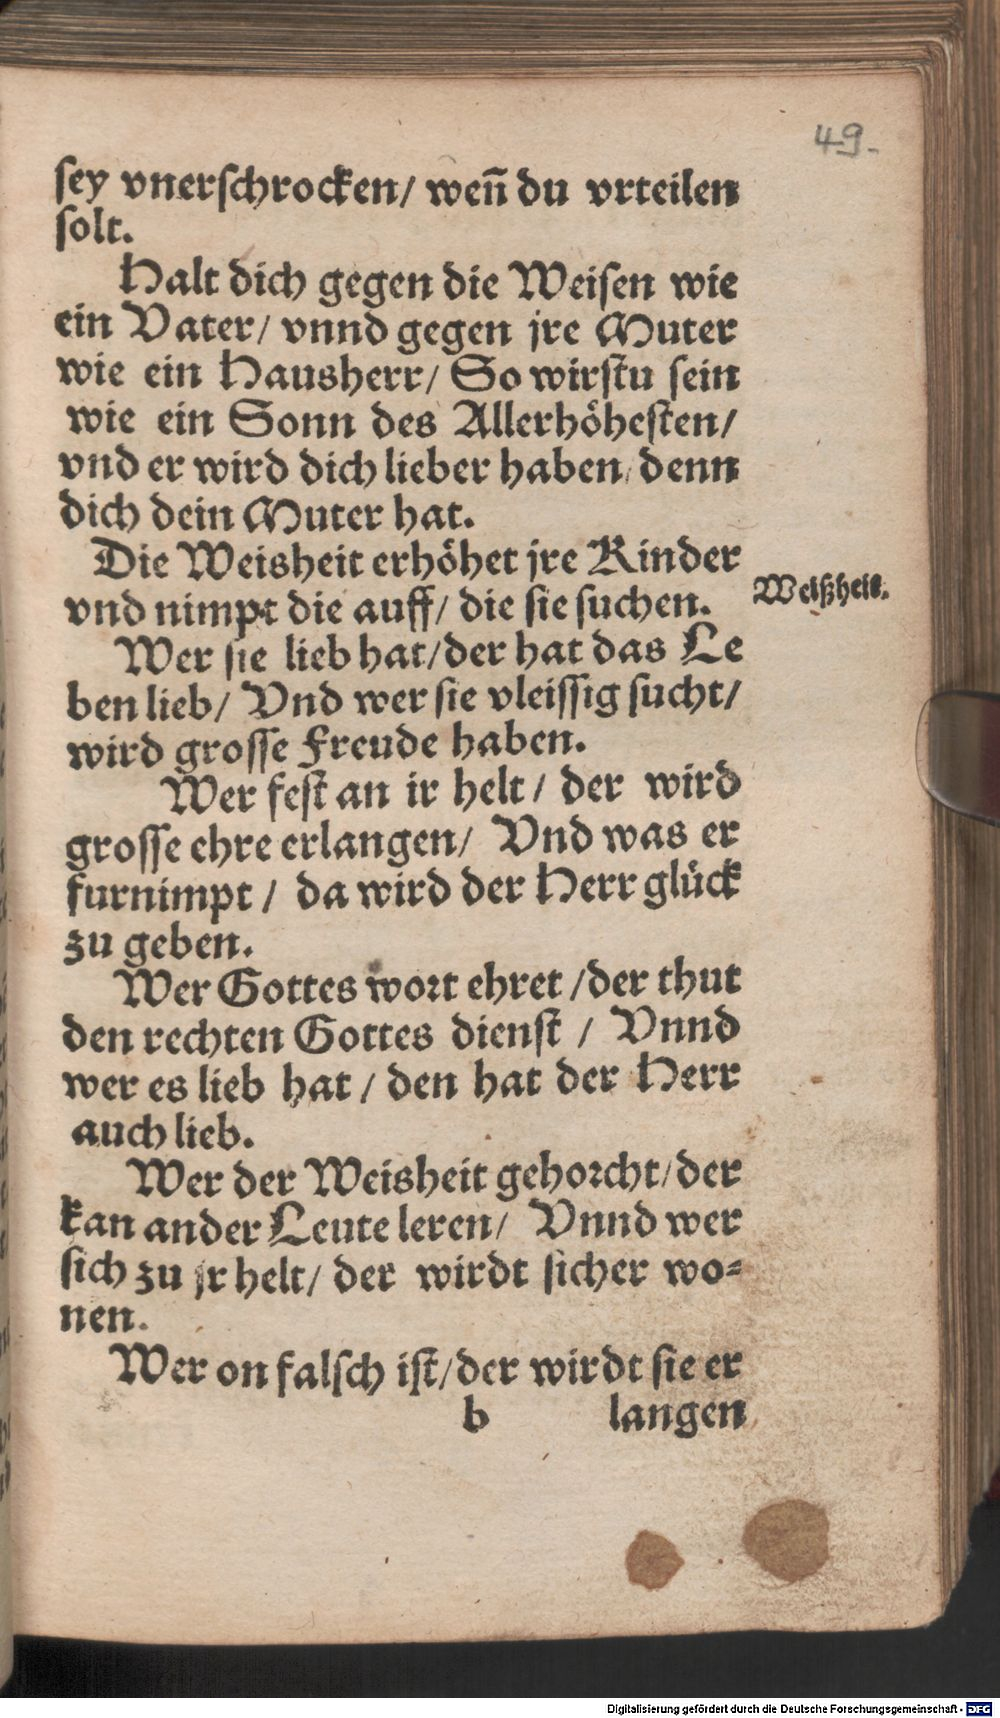 49.
sey vnerschrocken/ weñ du vrteilen
solt.
Halt dich gegen die Weisen wie
ein Vater/ vnnd gegen jre Muter
wie ein Hausherr/ So wirstu sein
wie ein Sonn des Allerhöhesten/
vnd er wird dich lieber haben/ denn
dich dein Muter hat.
Die Weisheit erhöhet jre Kinder
vnd nimpt die auff/ die sie suchen.
Weißheit.
Wer sie lieb hat/ der hat das Le
ben lieb/ Vnd wer sie vleissig sucht/
wird grosse Freude haben.
Wer fest an ir helt/ der wird
grosse ehre erlangen/ Vnd was er
furnimpt/ da wird der Herr glück
zu geben.
Wer Gottes wort ehret/ der thut
den rechten Gottes dienst/ Vnnd
wer es lieb hat/ den hat der Herr
auch lieb.
Wer der Weisheit gehorcht/ der
kan ander Leute leren/ Vnnd wer
sich zu jr helt/ der wirdt sicher wo⸗
nen.
Wer on falsch ist/ der wirdt sie er
b langen
Digitalisierung gefördert durch die Deutsche Forschungsgemeinschaft - DFG